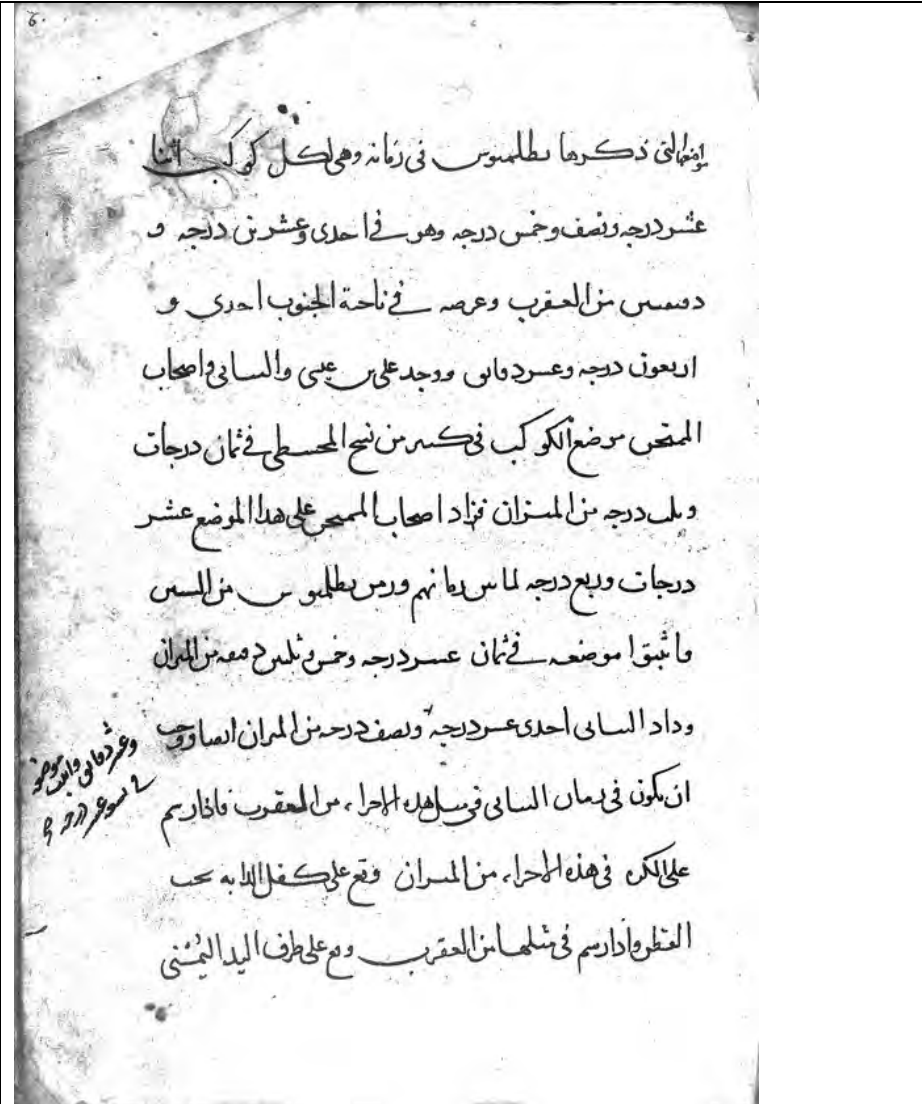 مواضعها التي ذكرها بطلميوس في زمانه وهي لكل كوكب اثنا
عشر درجه ونصف وخمس درجه وهو في احدى وعشرين درجه و
دقيقتين من العقرب وعرضه في ناحية الجنوب احدى و
اربعون درجه وعشر دقائق ووجد علي بن عيسى والبتاني واصحاب
الممتحن موضع الكوكب في كثير من نسخ المجسطي في ثمان درجات
وثلث درجه من الميزان فزاد اصحاب الممتحن على هذا الموضع عشر
درجات وربع درجه لما بين زمانهم وزمن بطلميوس من السنين
فاثبتوا موضعه في ثمان عشر درجه وخمس وثلثين دقيقه من الميزان
وزاد البتاني احدى عشر درجه ونصف درجه من الميزان ايضا ووجب
ان يكون في زمان البتاني في مثل هذه الاجزاء من العقرب فاذا رسم
على الكره في هذه الاجزاء من الميزان وقع على كفل الدابه تحت
القطن واذا رسم في مثلها من العقرب وقع على طرف اليد اليمنى
وعشر دقائق واثبت موضعه
في تسع عشر درجه